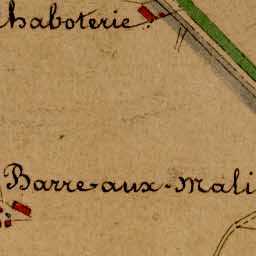 haboterie
Barre-aux-Mali